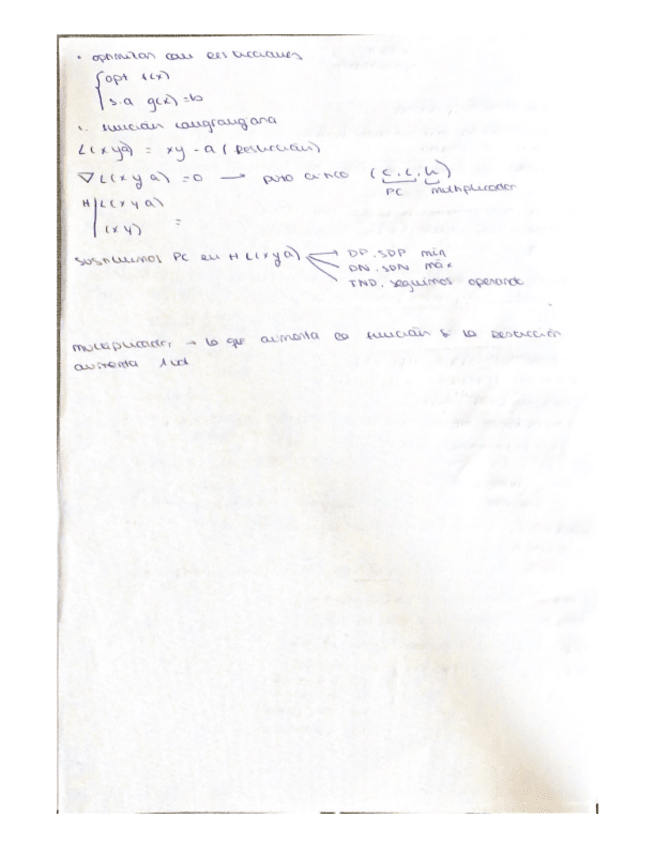 • optimizar con restricciones
{ opt f(x)
s.a g(x) = b
1. función Langrangiana
L(x y a) = xy - a (Restricción)
∇ L(x y a) = 0 → punto crítico (c, c, h)
PC multiplicador
H L(x y a)
(x y) =
Sustituimos PC en H L(x y a) → DP. SDP min
DN. SDN máx
IND. seguimos operando
multiplicador → lo que aumenta la función si la restricción
aumenta 1 ud